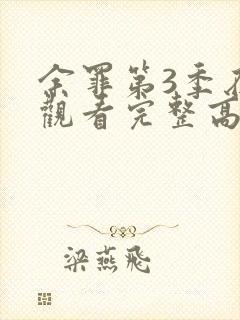 余罪第3季
觀看完整高
梁燕飛